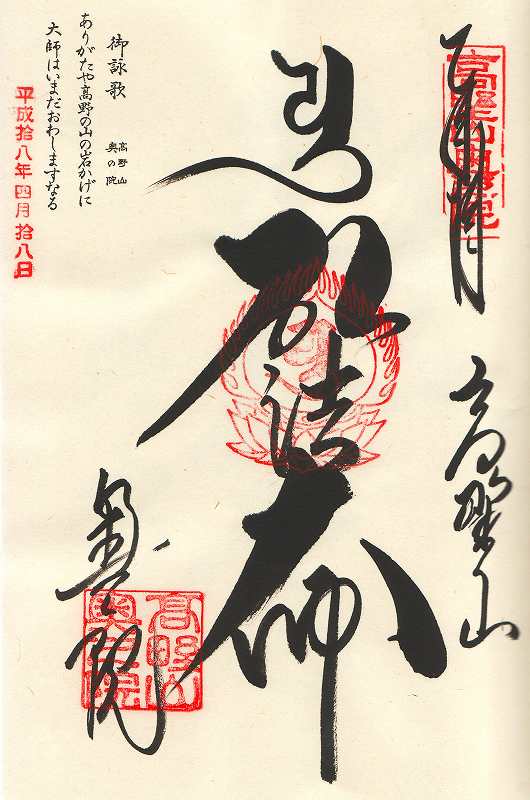 奉拝
高野山
弘法大師
奥之院
高野山奥之院
御詠歌
高野山
奥の院
ありがたや高野の山の岩かげに
大師はいまだおわしますなる
平成拾八年四月拾八日